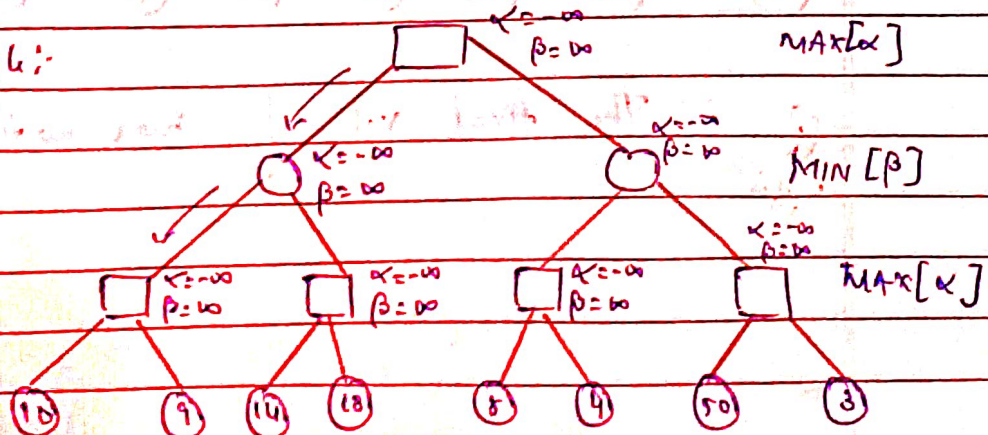 α=-∞
β=∞
MAX[α]
α=-∞
β=∞
α=-∞
β=∞
MIN [β]
α=-∞
β=∞
α=-∞
β=∞
α=-∞
β=∞
α=-∞
β=∞
MAX[α]
10 9 14 18 8 4 50 3